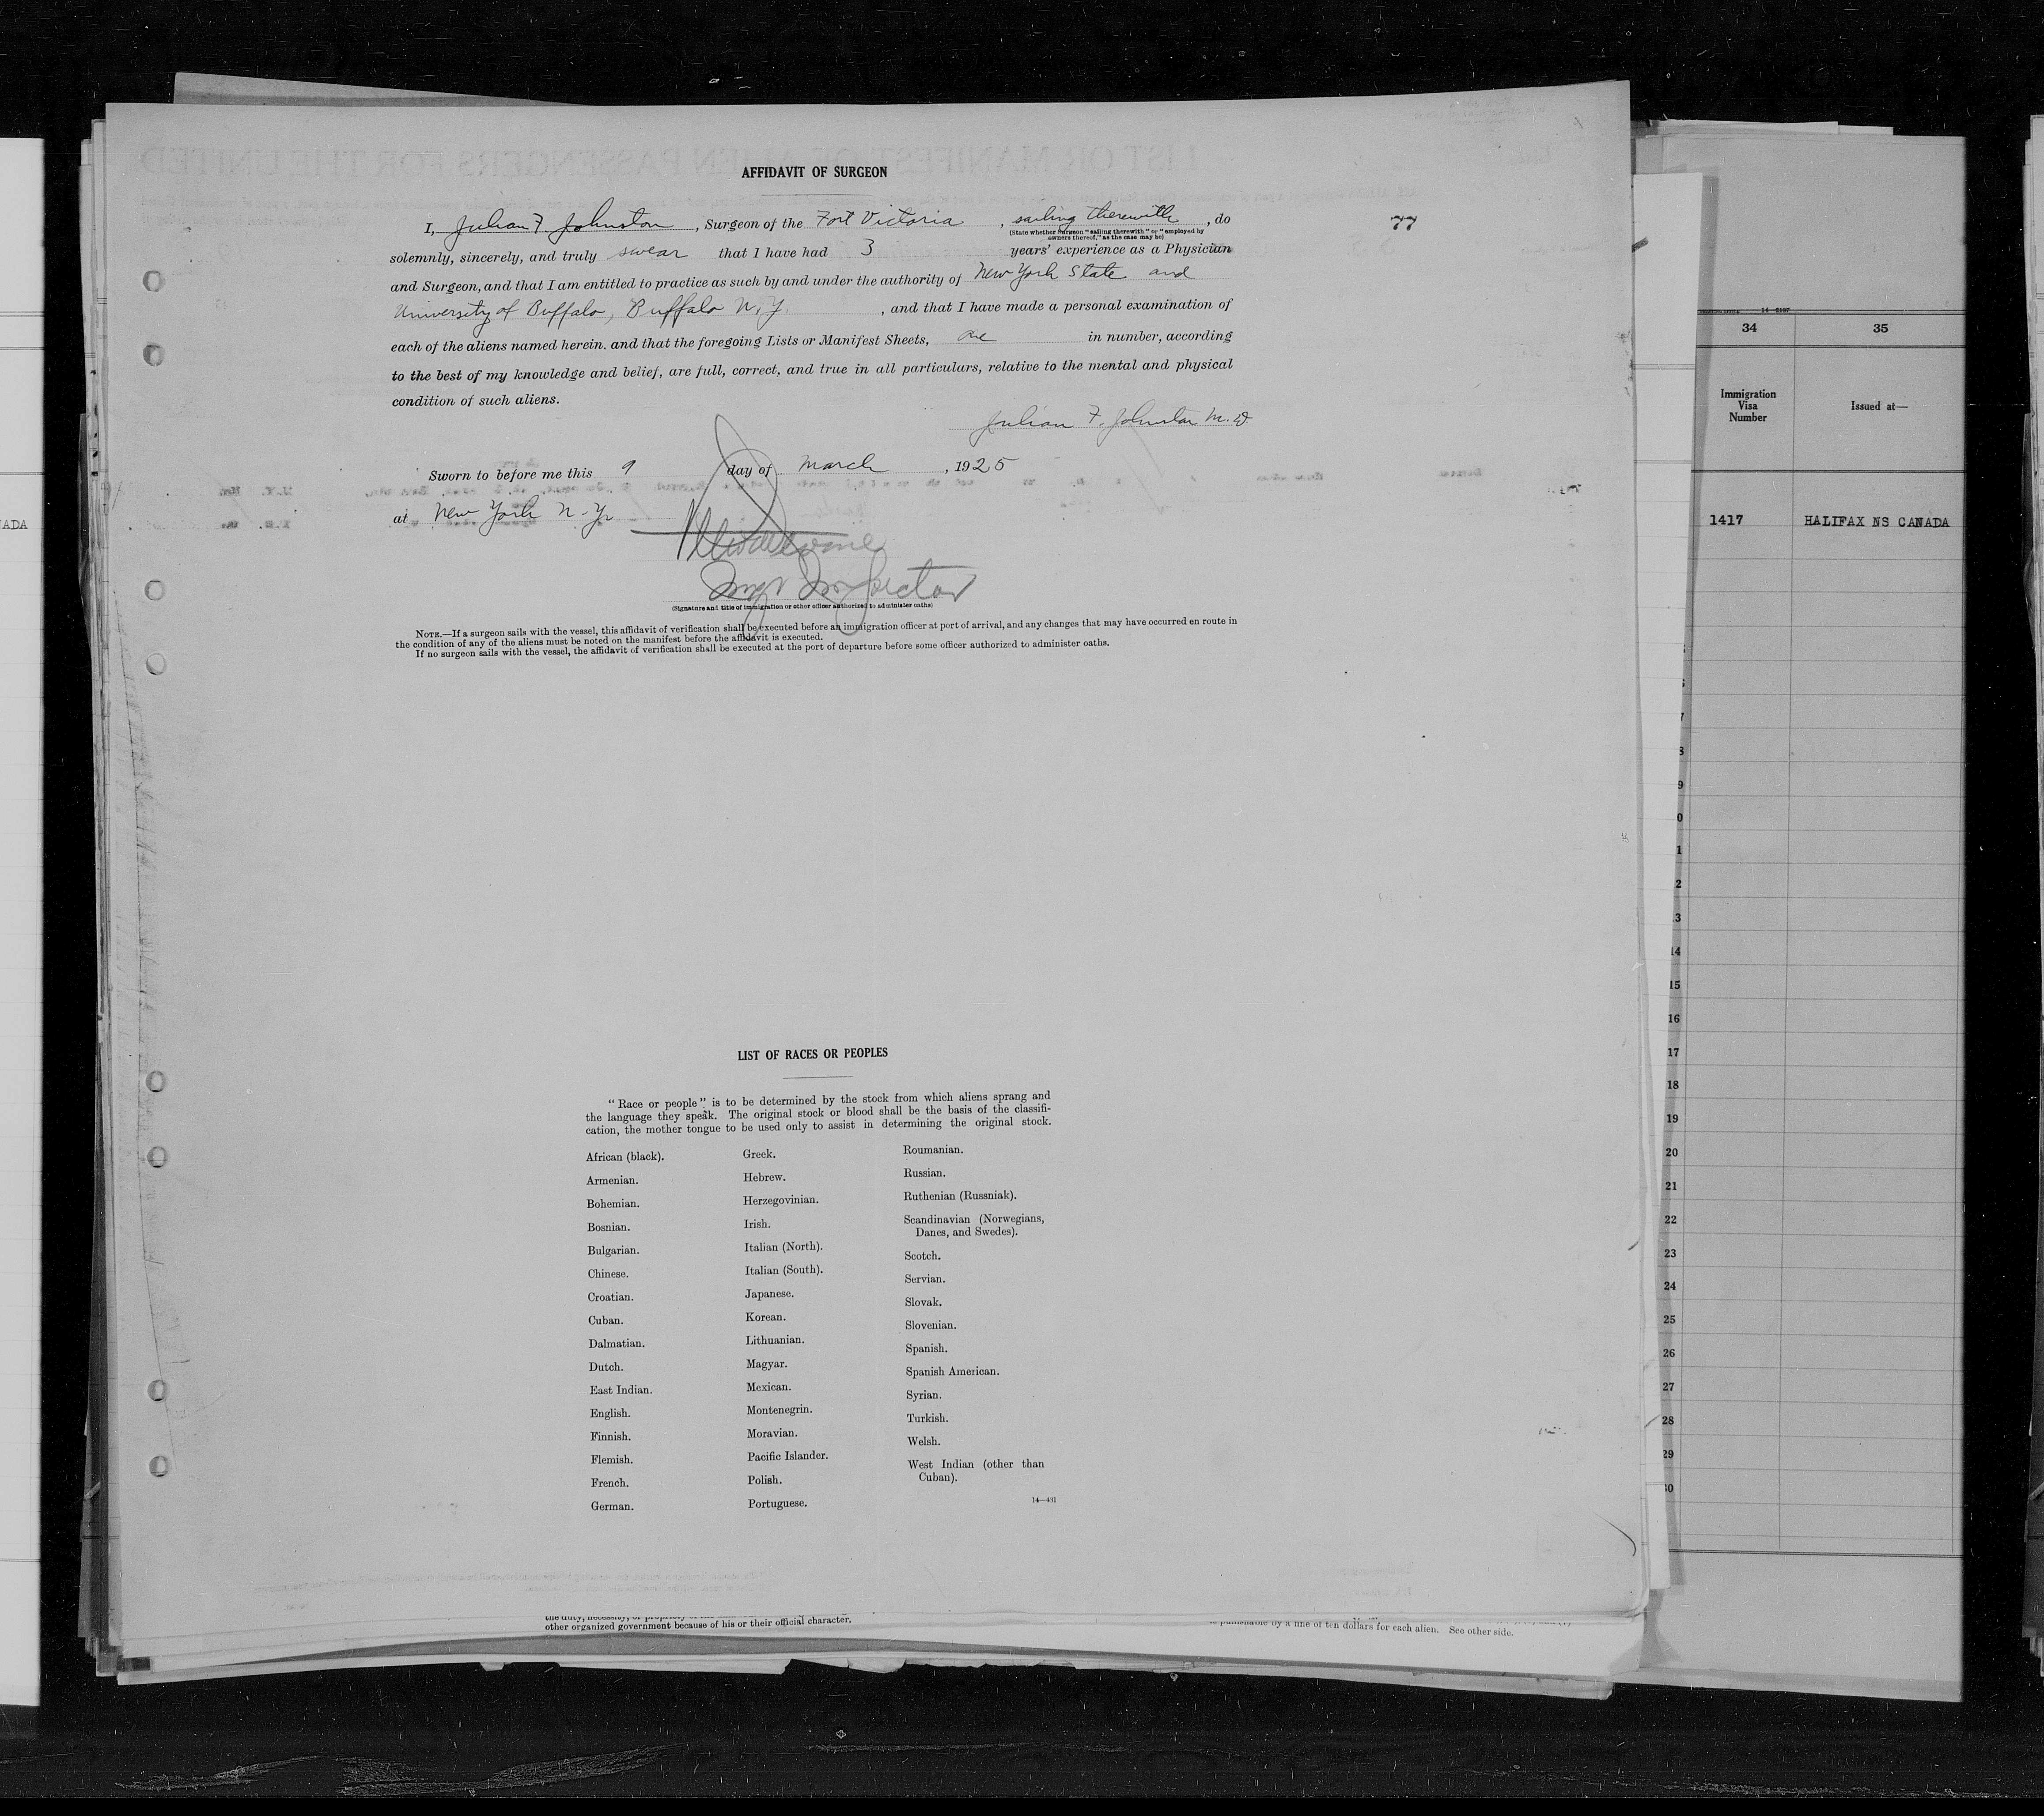 AFFIDAVIT OF SURGEON
77
I, Julian F. Johnston, Surgeon of the Fort Victoria, sailing therewith, do
(State whether surgeon "sailing therewith" or "employed by
owners thereof," as the case may be)
solemnly, sincerely, and truly swear that I have had 3 years' experience as a Physician
and Surgeon, and that I am entitled to practice as such by and under the authority of New York State and
University of Buffalo, Buffalo N.Y., and that I have made a personal examination of
each of the aliens named herein, and that the foregoing Lists or Manifest Sheets, one in number, according
to the best of my knowledge and belief, are full, correct, and true in all particulars, relative to the mental and physical
condition of such aliens.
Julian F. Johnston M.D.
Sworn to before me this 9 day of March, 1925
at New York N.Y.
Inspector
(Signature and title of immigration or other officer authorized to administer oaths)
NOTE.—If a surgeon sails with the vessel, this affidavit of verification shall be executed before an immigration officer at port of arrival, and any changes that may have occurred en route in
the condition of any of the aliens must be noted on the manifest before the affidavit is executed.
If no surgeon sails with the vessel, the affidavit of verification shall be executed at the port of departure before some officer authorized to administer oaths.
LIST OF RACES OR PEOPLES
"Race or people" is to be determined by the stock from which aliens sprang and
the language they speak. The original stock or blood shall be the basis of the classifi-
cation, the mother tongue to be used only to assist in determining the original stock.
African (black).
Armenian.
Bohemian.
Bosnian.
Bulgarian.
Chinese.
Croatian.
Cuban.
Dalmatian.
Dutch.
East Indian.
English.
Finnish.
Flemish.
French.
German.
Greek.
Hebrew.
Herzegovinian.
Irish.
Italian (North).
Italian (South).
Japanese.
Korean.
Lithuanian.
Magyar.
Mexican.
Montenegrin.
Moravian.
Pacific Islander.
Polish.
Portuguese.
Roumanian.
Russian.
Ruthenian (Russniak).
Scandinavian (Norwegians,
Danes, and Swedes).
Scotch.
Servian.
Slovak.
Slovenian.
Spanish.
Spanish American.
Syrian.
Turkish.
Welsh.
West Indian (other than
Cuban).
14—431
other organized government because of his or their official character.
is punishable by a fine of ten dollars for each alien. See other side.
ADA
34 35
Immigration
Visa
Number
Issued at—
1417 HALIFAX NS CANADA
14
15
16
17
18
19
20
21
22
23
24
25
26
27
28
29
30